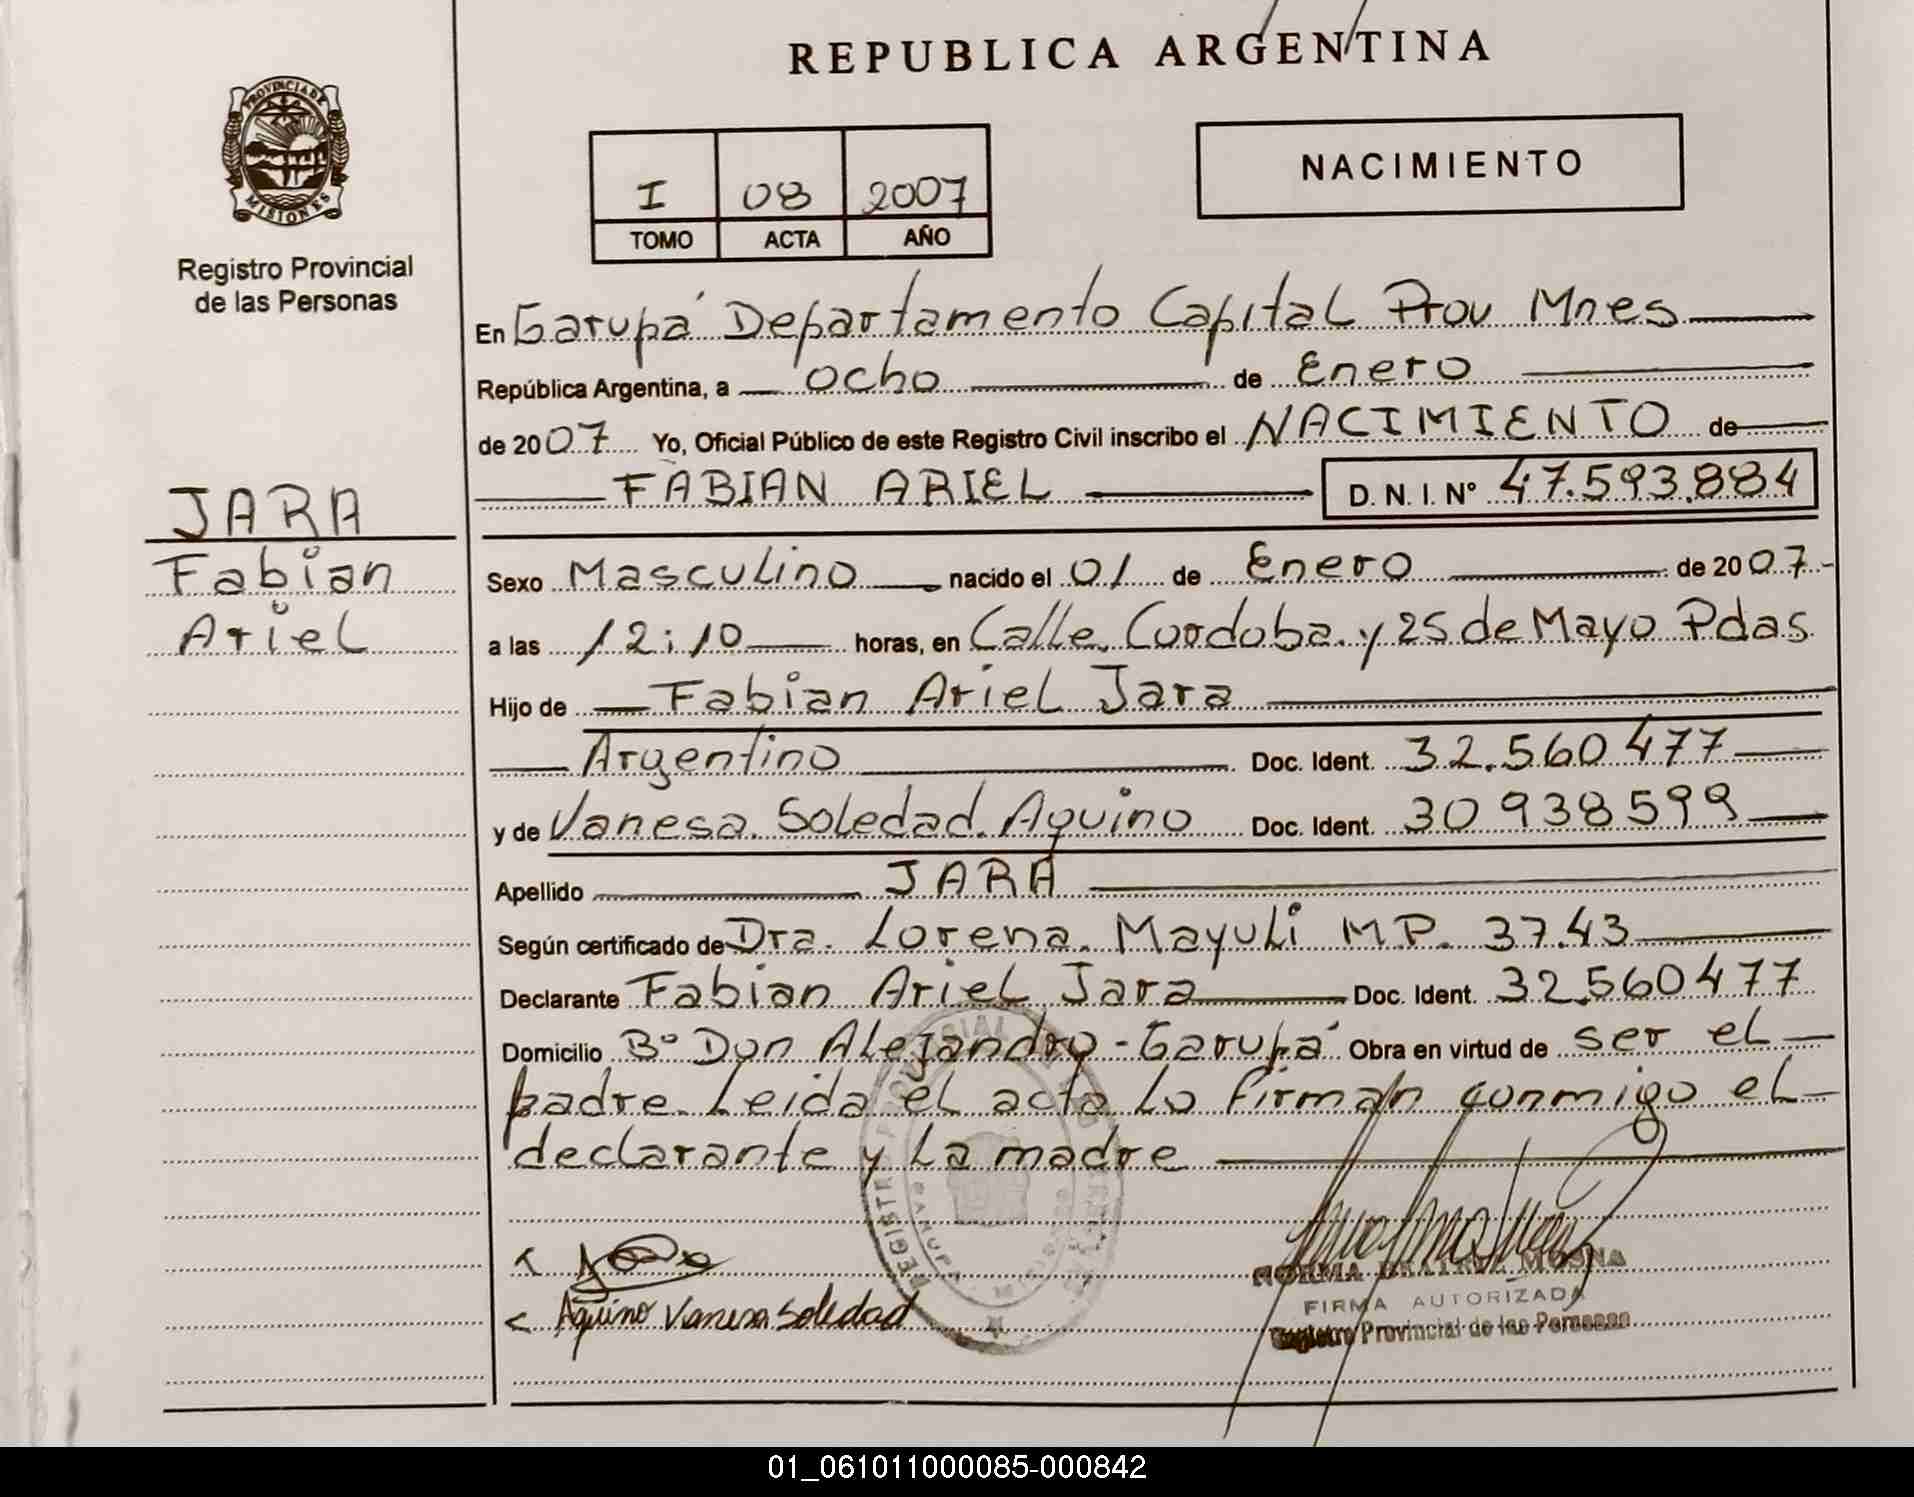 REPUBLICA ARGENTINA
PROVINCIA DE
MISIONES
Registro Provincial
de las Personas
I 08 2007
TOMO ACTA AÑO
NACIMIENTO
En Garupá Departamento Capital Prov Mnes
República Argentina, a ocho de Enero
de 2007 Yo, Oficial Público de este Registro Civil inscribo el NACIMIENTO de
FABIAN ARIEL D. N. I. Nº 47.593.884
JARA
Fabian
Ariel
Sexo Masculino nacido el 01 de Enero de 2007
a las 12:10 horas, en Calle Cordoba y 25 de Mayo Pdas
Hijo de Fabian Ariel Jara
Argentino Doc. Ident. 32.560 477
y de Vanesa Soledad Aquino Doc. Ident. 30 938 599
Apellido JARA
Según certificado de Dra. Lorena Mayuli MP. 3743
Declarante Fabian Ariel Jara Doc. Ident. 32.560477
Domicilio Bº Don Alejandro - Garupá Obra en virtud de ser el
padre. Leida el acta lo firman conmigo el
declarante y La madre
Aquino Vanesa Soledad
NORMA BEATRIZ
FIRMA AUTORIZADA
Registro Provincial de las Personas
01_061011000085-000842